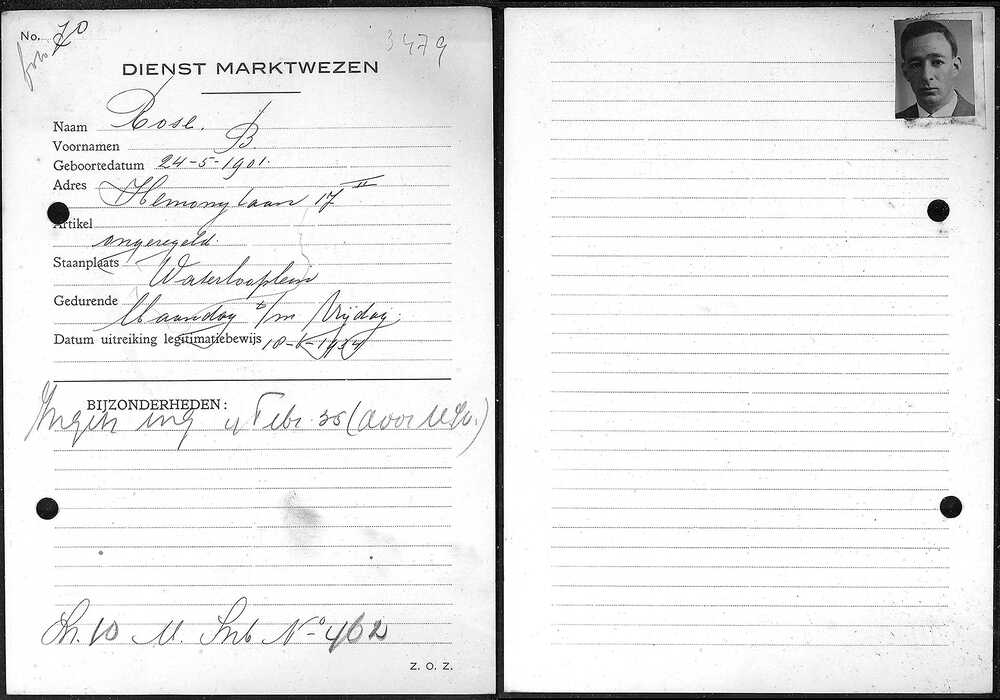 No. 70
foto
3479
DIENST MARKTWEZEN
Naam Rose.
Voornamen B.
Geboortedatum 24-5-1901.
Adres Hemonylaan 17 II
Artikel
ongeregeld.
Staanplaats Waterlooplein
Gedurende Maandag t/m Vrijdag.
Datum uitreiking legitimatiebewijs
BIJZONDERHEDEN:
Febr. 35 (door
N° 462
Z. O. Z.